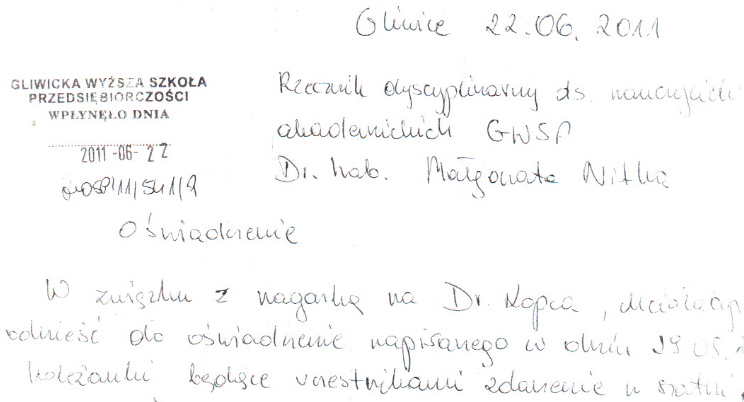 Gliwice 22.06.2011
GLIWICKA WYŻSZA SZKOŁA
PRZEDSIĘBIORCZOŚCI
WPŁYNĘŁO DNIA
2011-06-22
Rzecznik dyscyplinarny ds. nauczycieli
akademickich GWSP
Dr. hab. Małgorzata Nitka
Oświadczenie
W związku z nagonką na Dr. Kopca, chciałabym
odnieść do oświadczenie napisanego w dniu
koleżanki będące uczestnikami zdarzenie w szatni